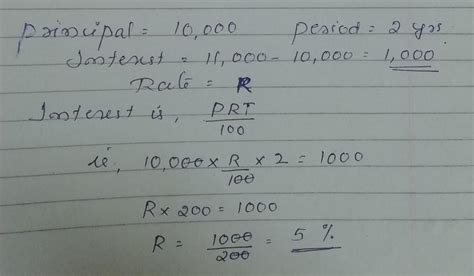 Principal = 10,000 Period = 2 yrs.
Interest = 11,000 - 10,000 = 1,000
Rate = R
Interest is, PRT/100
ie, 10,000 x R/100 x 2 = 1000
R x 200 = 1000
R = 1000/200 = 5 %